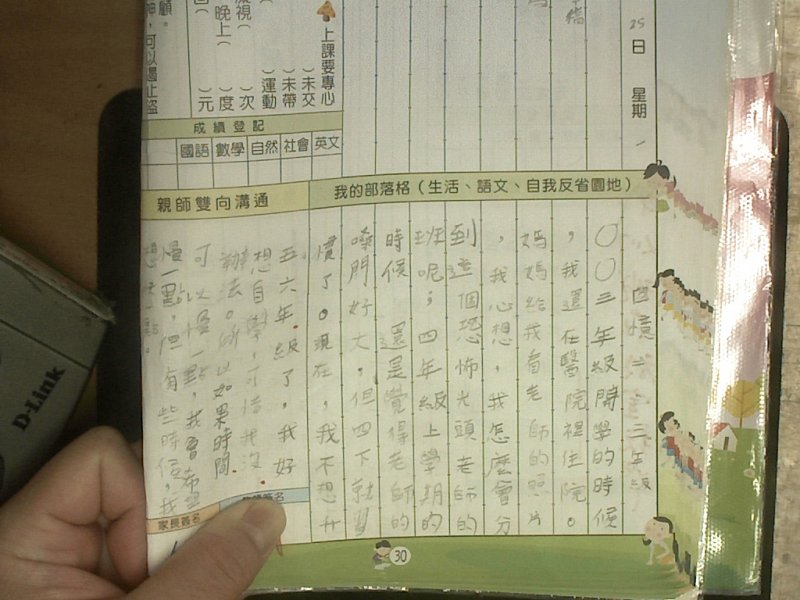 25日 星期一
上課要專心
（ ）未交
（ ）未帶
（ ）運動
（ ）次
（ ）度
晚上（
（ ）元
成績登記
國語 數學 自然 社會 英文
我的部落格（生活、語文、自我反省園地）
親師雙向溝通
回憶二:三年級
〇〇三年級開學的時候
，我還在醫院裡住院。
媽媽給我看老師的照片
，我心想，我怎麼會分
到這個恐怖光頭老師的
班呢；四年級上學期的
時候 還是覺得老師的
嗓門好大，但四下就習
慣了。現在，我不想升
五六年級了，我好
想自學，可惜我沒
辦法。所以如果時間
可以慢一點，我會希望
慢一點，但有些時候，我
想快一點。
家長簽名
30
D-Link